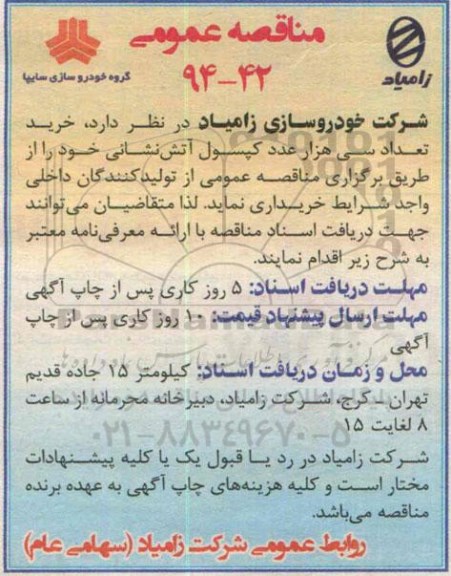 مناقصه عمومی
۹۴-۴۲
زامیاد
گروه خودرو سازی سایپا
شرکت خودروسازی زامیاد در نظر دارد، خرید
تعداد سی هزار عدد کپسول آتش‌نشانی خود را از
طریق برگزاری مناقصه عمومی از تولیدکنندگان داخلی
واجد شرایط خریداری نماید. لذا متقاضیان می‌توانند
جهت دریافت اسناد مناقصه با ارائه معرفی‌نامه معتبر
به شرح زیر اقدام نمایند.
مهلت دریافت اسناد: ۵ روز کاری پس از چاپ آگهی
مهلت ارسال پیشنهاد قیمت: ۱۰ روز کاری پس از چاپ
آگهی
محل و زمان دریافت اسناد: کیلومتر ۱۵ جاده قدیم
تهران ـ کرج، شرکت زامیاد، دبیرخانه محرمانه از ساعت
۸ لغایت ۱۵
۰۲۱-۸۸۳۴۹۶۷۰-۵
شرکت زامیاد در رد یا قبول یک یا کلیه پیشنهادات
مختار است و کلیه هزینه‌های چاپ آگهی به عهده برنده
مناقصه می‌باشد.
روابط عمومی شرکت زامیاد (سهامی عام)